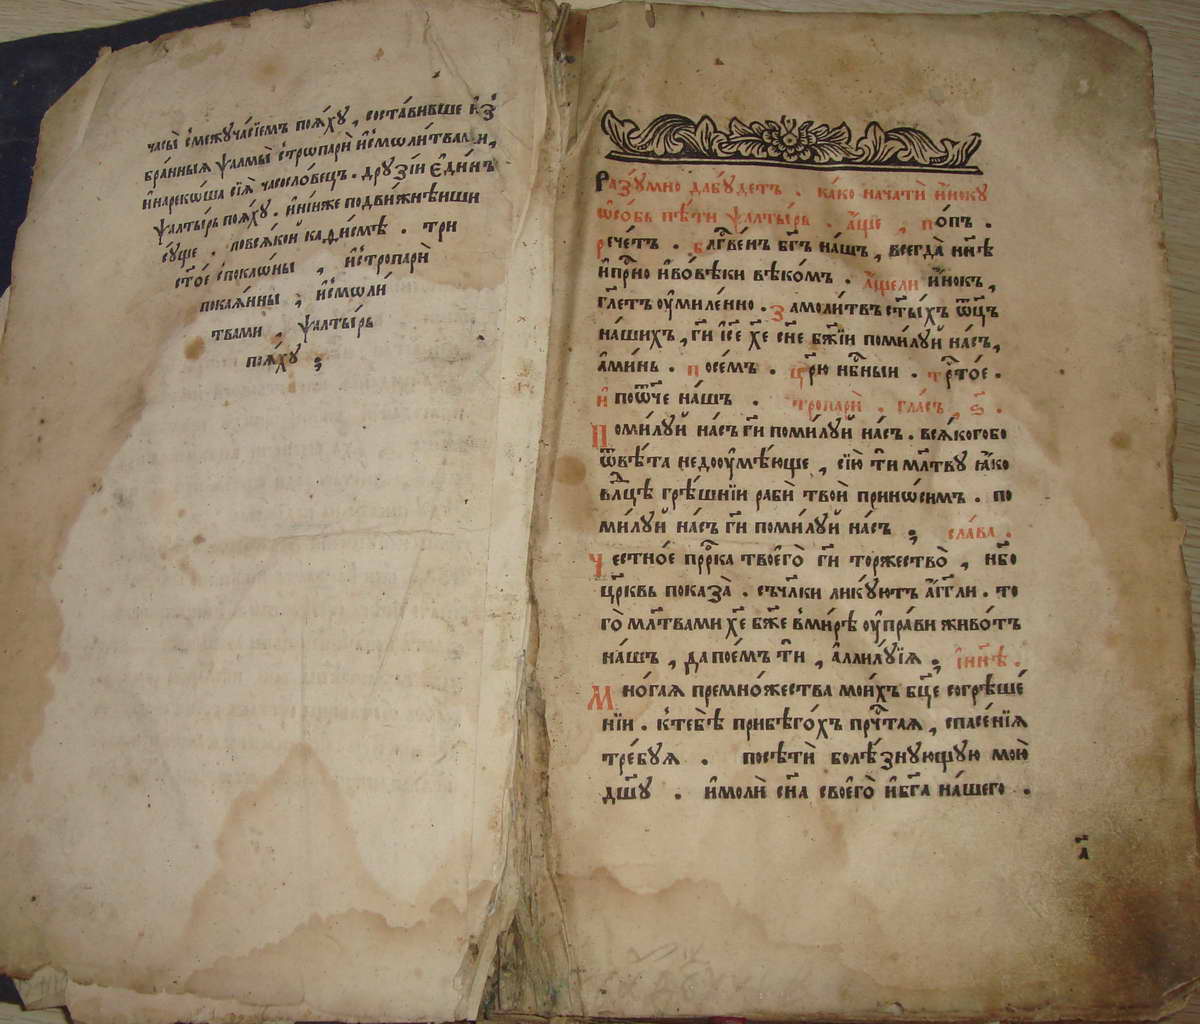 часы̀ с̾межꙋча́сїемъ поѧ́хꙋ , соста́вивше и҆з̾
бра́нныѧ ѱалмы̀ с̾трѡпарѝ и҆с̾моли́твами ,
и҆нареко́ша сїѧ̀ часосло́вецъ . дрꙋзі́и є҆ди́нъ
ѱалты́рь поѧ́хꙋ . и҆ні́нже подви́жнѣиши
сꙋ́ще . повсѧ́кои каѳи́смѣ . три
ст҃о́е с̾покло́ны , и҆с̾тропарѝ
покаѧ́нны , и҆с̾моли́
твами , ѱалты́рь
поѧ́хꙋ ;
Разꙋ́мно дабꙋ́детъ . ка́ко начатѝ и҆́нокꙋ
ѡ҆со́бь пѣ́ти ѱалты́рь . а҆́ще , по́пъ .
рече́тъ . бл҃гвє́нъ бг҃ъ на́шъ , всегда̀ нн҃ѣ
и҆при́но и҆во́вѣки вѣко́мъ . а҆́щели и҆́нокъ ,
гл҃етъ оу҆миле́нно . замоли́твъ ст҃ы́хъ ѿц҃ъ
на́шихъ , гд҃и і҆с҃е хр҃те сн҃е бж҃їи поми́лꙋй на́съ ,
а҆ми́нь . посе́мъ . цр҃ю нб҃ныи . трт҃о́е .
и҆ поѿч҃е на́шъ . тропарѝ . гла́съ , ѕ҃ .
Поми́лꙋй на́съ гд҃и поми́лꙋй на́съ . всѧ́когобо
ѿвѣ́та недооу҆мѣ́юще , сїю̀ ти мл҃твꙋ ꙗ҆́ко
влⷣцѣ грѣ́шнїи рабѝ твоѝ прино́симъ . по
ми́лꙋй на́съ гд҃и поми́лꙋй на́съ ; сла́ва .
Честно́е прⷪ҇рка твоегѡ̀ гд҃и торжество̀ , нб҃о
цр҃ковь показа̀ . съчл҃ки ликꙋ́ютъ а҆́гг҃ли . то
го̀ мл҃твами хр҃те бж҃е в̾ми́рѣ оу҆пра́ви живо́тъ
на́шъ , да пое́мъ ти , а҆ллилꙋ́їѧ ; и҆нн҃ѣ .
Мно́гаѧ премно́жества мои́хъ бц҃е согрѣше́
нїи . к̾тебѣ̀ прибѣго́хъ прⷱ҇таѧ , спасе́нїѧ
тре́бꙋѧ . посѣтѝ болѣ́знꙋющꙋю моѝ
дш҃ꙋ . и҆молѝ сн҃а своего̀ и҆бг҃а на́шего .
а҃